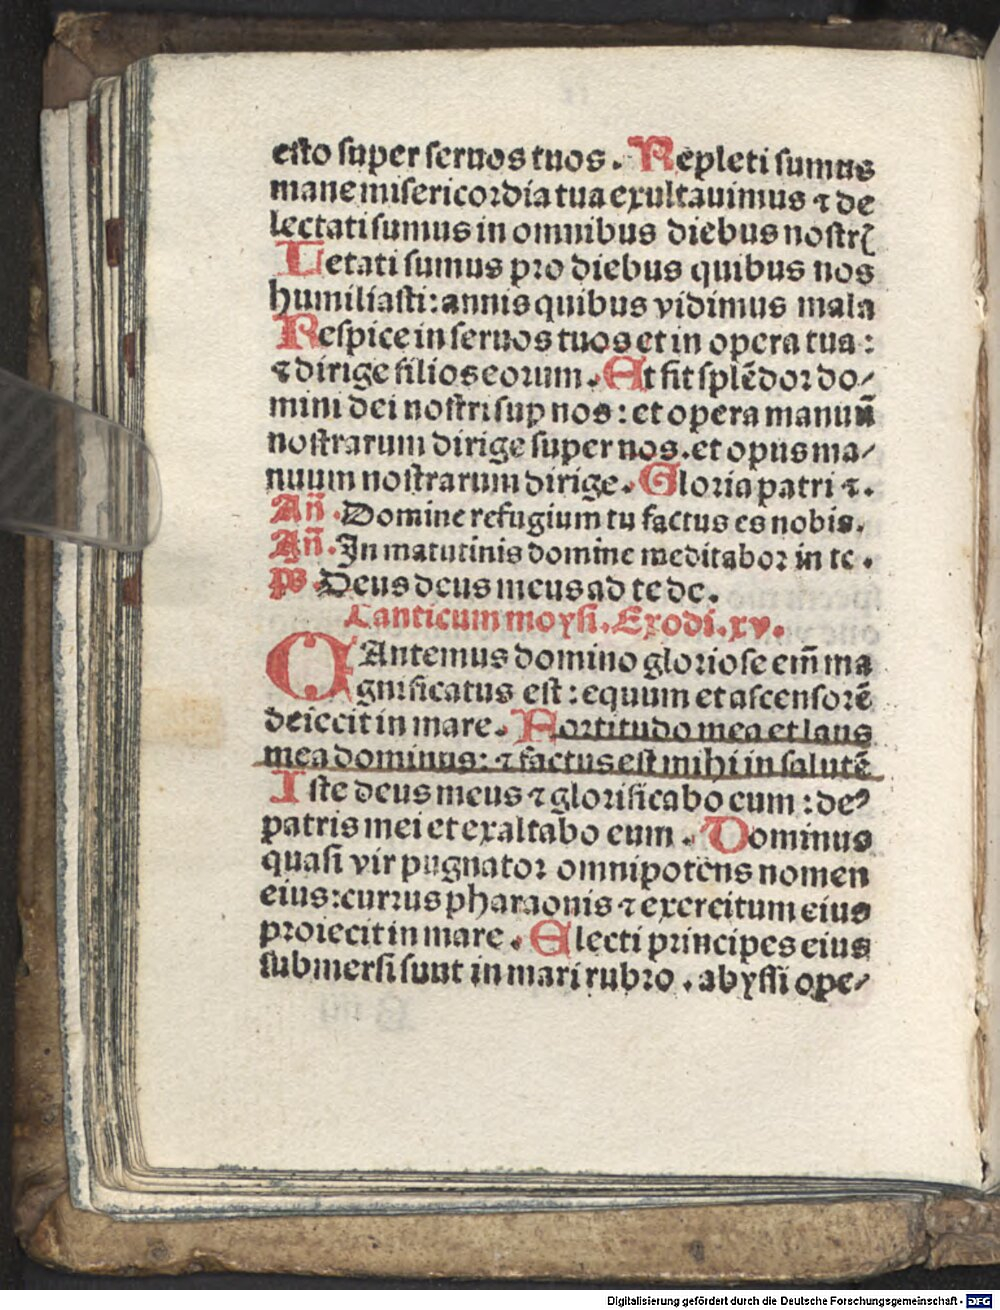 esto super seruos tuos. Repleti sumus
mane misericordia tua exultauimus ⁊ de
lectati sumus in omnibus diebus nostrꝭ
Letati sumus pro diebus quibus nos
humiliasti: annis quibus vidimus mala
Respice in seruos tuos et in opera tua:
⁊ dirige filios eorum. Et sit splēdor do⸗
mini dei nostri suꝑ nos: et opera manuū
nostrarum dirige super nos. et opus ma⸗
nuum nostrarum dirige. Gloria patri ⁊.
Añ. Domine refugium tu factus es nobis.
Añ. In matutinis domine meditabor in te.
ps. Deus deus meus ad te de.
Canticum moysi. Exodi. xv.
CAntemus domino gloriose em̄ ma
gnificatus est: equum et ascensorē
deiecit in mare. Fortitudo mea et laus
mea dominus: ⁊ factus est mihi in salutē
Iste deus meus ⁊ glorificabo eum: de⁹
patris mei et exaltabo eum. Dominus
quasi vir pugnator omnipotens nomen
eius: currus pharaonis ⁊ exercitum eius
proiecit in mare. Electi principes eius
submersi sunt in mari rubro. abyssi ope⸗
Digitalisierung gefördert durch die Deutsche Forschungsgemeinschaft - DFG